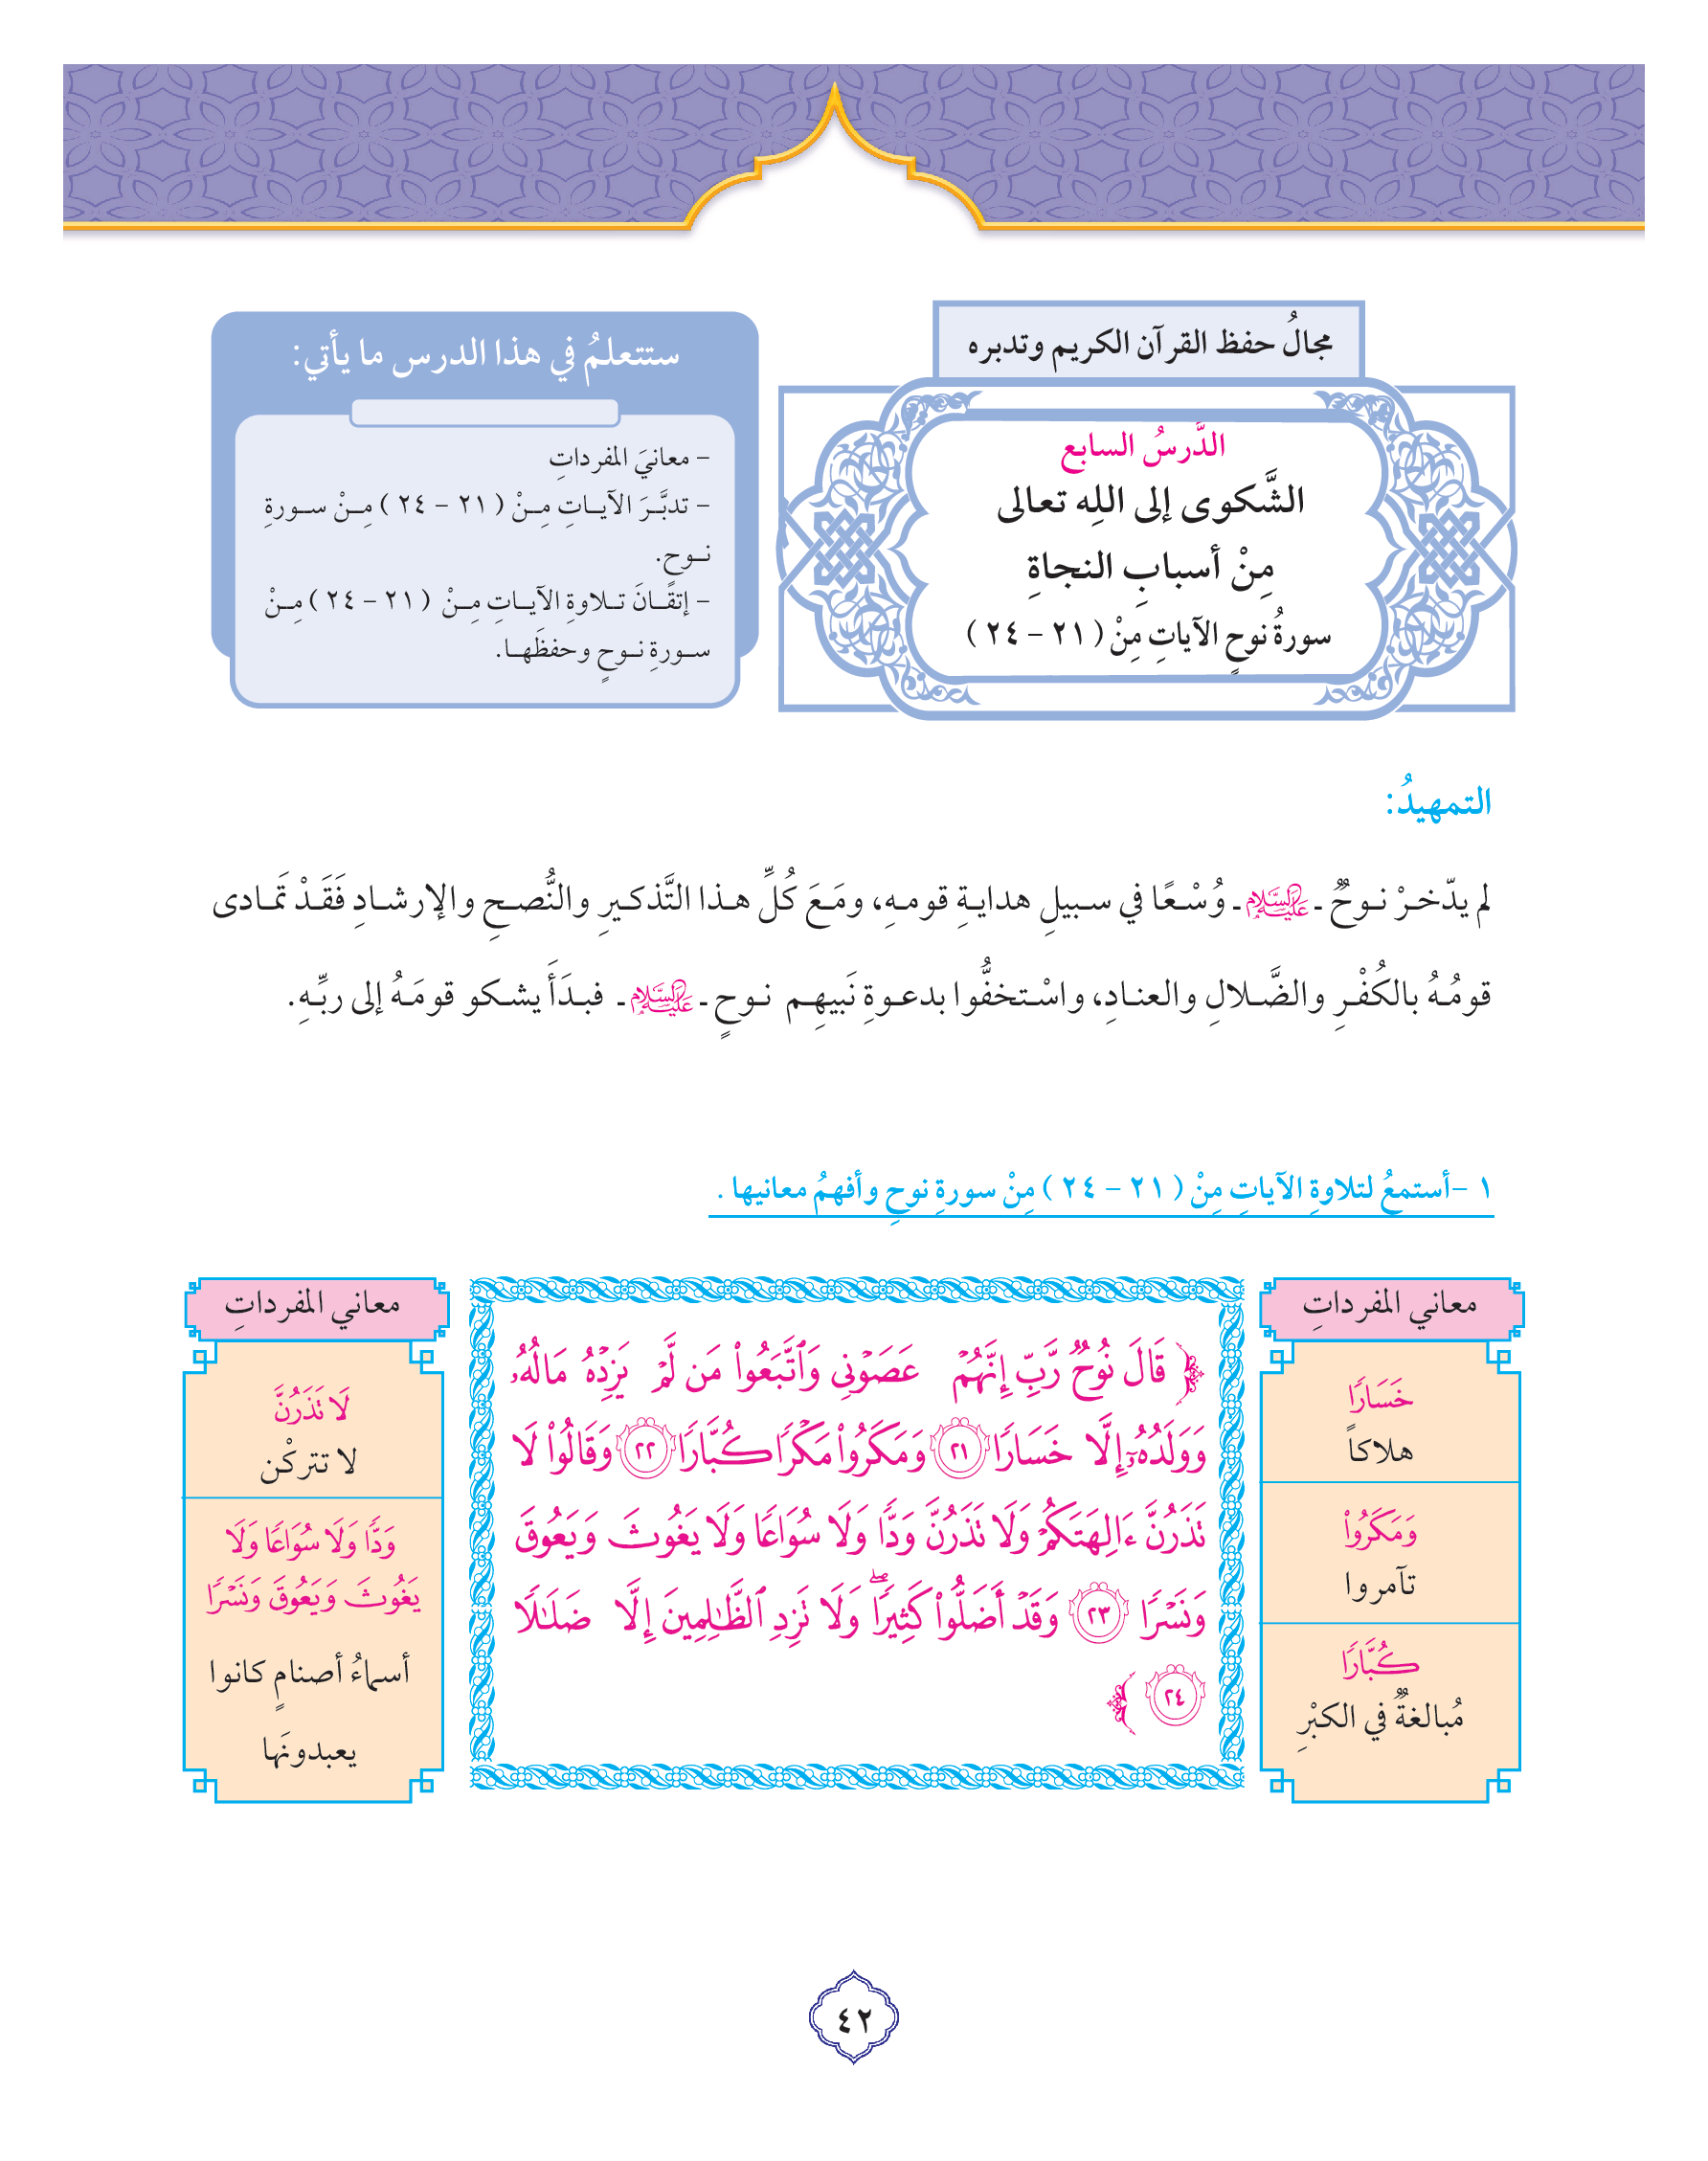 مجالُ حفظ القرآن الكريم وتدبره
الدَّرسُ السابع
الشَّكوى إلى اللِه تعالى
مِنْ أسبابِ النجاةِ
سورةُ نوحٍ الآياتِ مِنْ ( ٢١ - ٢٤ )
ستتعلمُ في هذا الدرس ما يأتي:
- معانيَ المفرداتِ
- تدبَّـرَ الآيـاتِ مِـنْ ( ٢١ - ٢٤ ) مِـنْ سـورةِ
نـوحٍ.
- إتقـانَ تـلاوةِ الآيـاتِ مِـنْ ( ٢١ - ٢٤ ) مِـنْ
سـورةِ نـوحٍ وحفظَهـا.
التمهيدُ:
لم يدّخـرْ نـوحٌ ـ عَلَيْهِ السَّلَام ـ وُسْعًا في سـبيلِ هدايـةِ قومـهِ، ومَـعَ كُلِّ هـذا التَّذكـيرِ والنُّصـحِ والإرشـادِ فَقَـدْ تمَـادى
قومُـهُ بالكُفْـرِ والضَّـلالِ والعنـادِ، واسْـتخفُّوا بدعـوةِ نَبيهِـم نـوحٍ ـ عَلَيْهِ السَّلَام ـ فبـدَأَ يشـكو قومَـهُ إلى ربِّـهِ.
١ -أستمعُ لتلاوةِ الآياتِ مِنْ ( ٢١ - ٢٤ ) مِنْ سورةِ نوحٍ وأفهمُ معانيها .
معاني المفرداتِ
خَسَارًا
هلاكاً
وَمَكَرُواْ
تآمروا
كُبَّارًا
مُبالغةٌ في الكبْرِ
﴿ قَالَ نُوحٌ رَّبِّ إِنَّهُمْ عَصَوْنِى وَٱتَّبَعُواْ مَن لَّمْ يَزِدْهُ مَالُهُۥ
وَوَلَدُهُۥٓ إِلَّا خَسَارًا ٢١ وَمَكَرُواْ مَكْرًا كُبَّارًا ٢٢ وَقَالُواْ لَا
تَذَرُنَّ ءَالِهَتَكُمْ وَلَا تَذَرُنَّ وَدًّا وَلَا سُوَاعًا وَلَا يَغُوثَ وَيَعُوقَ
وَنَسْرًا ٢٣ وَقَدْ أَضَلُّواْ كَثِيرًا ۖ وَلَا تَزِدِ ٱلظَّٰلِمِينَ إِلَّا ضَلَٰلًا
٢٤ ﴾
معاني المفرداتِ
لَا تَذَرُنَّ
لا تتركْن
وَدًّا وَلَا سُوَاعًا وَلَا
يَغُوثَ وَيَعُوقَ وَنَسْرًا
أسماءُ أصنامٍ كانوا
يعبدونَها
٤٢